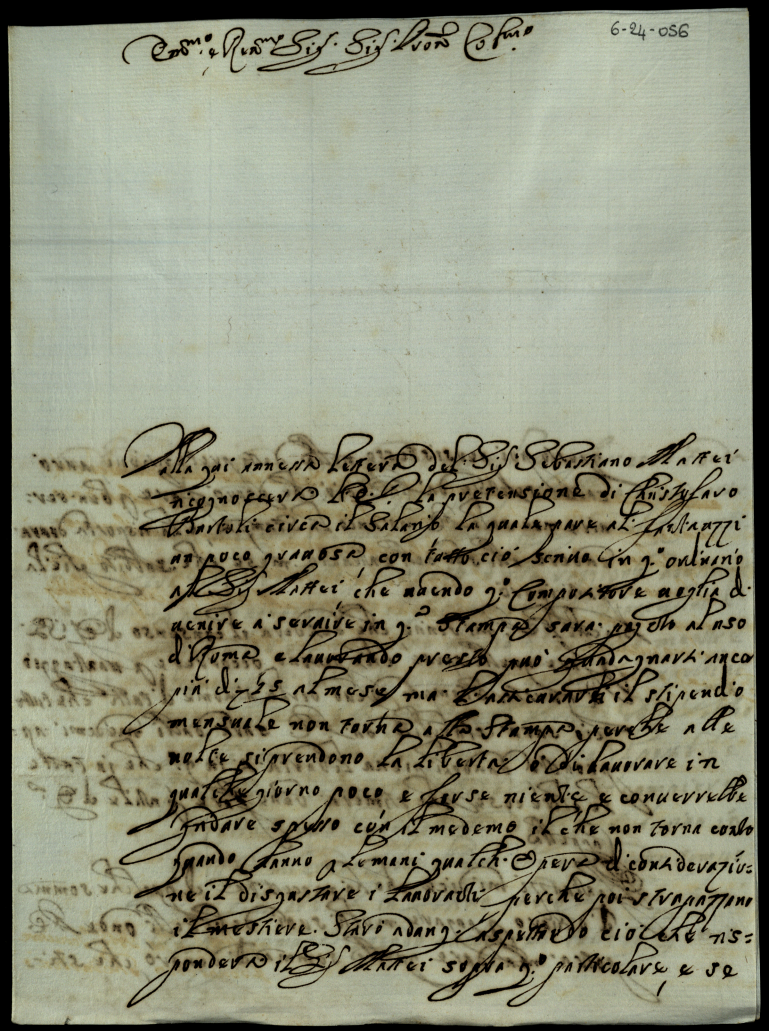 6-24-056
Em.mo e Rev.mo Sig. Sig. Pron. Col.mo
Dalla qui annessa lettera del Sig. Sebastiano Mattei
ricognoscerà la pretensione di Christofaro
Bartoli circa il Salario la quale pare al Fantuzzi
un poco gravosa con tutto ciò scrivo in q.o ordinario
al Sig. Mattei che uuendo q.o Compositore voglia di
uenire à seruire in q.a Stampa sarà pagato al uso
di Roma e lauorando presto può guadagnarsi ancor
più di 15 al mese, ma l'assicurarli il stipendio
mensuale non torna alla Stampa, perche alle
uolte si prendono la libertà ò di lauorare in
qualche giorno poco e forse niente e conuerrebbe
gridare spesso con il medemo il che non torna conto
quando hanno alle mani qualch. Opera di consideratio-
ne il disgustare i lauoranti perche poi strapazzano
il mestiere. Starò adunq. aspettando ciò che ris=
ponderà il Sig. Mattei sopra q.o particolare, e se